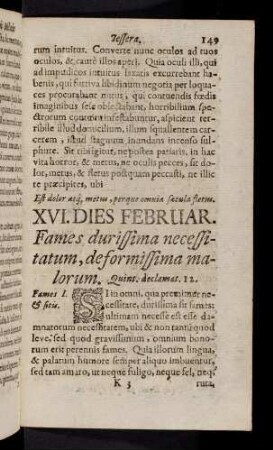 Tesseræ. 149
rum intuitus. Converte nunc oculos ad tuos
oculos, & cautè illos aperi. Quia oculi illi, qui
ad impudicos intuitus laxatis excurrebant ha-
benis, qui furtiva libidinum negotia per loqua-
ces procurabant nutus, qui contuendis fœdis
imaginibus sese oblectabant, horribilium spe-
ctrorum contuitu infestabuntur, aspicient ter-
ribile illud domicilium, illum squallentem car-
cerem, istud stagnum inundans incenso sul-
phure. Sit tibi igitur, ne postea patiaris, in hac
vita horror, & metus, ne oculis pecces, sit do-
lor, metus, & fletus postquam peccasti, ne illic
te præcipites, ubi
Est dolor atq, metus, perque omnia sæcula fletus.
XVI. DIES FEBRUAR.
Fames durissima necessi-
tatum, deformissima ma-
lorum. Quint. declamat. 12.
Fames I.
& sitis.
SI in omni, qua premimur ne-
cessitate, durissima sit fames;
ultimam necesse est esse da-
mnatorum necessitatem, ubi & non tantùm quod
leve, sed quod gravissimum, omnium bono-
rum erit perennis fames. Quia illorum lingua,
& palatum humore semper aliquo imbuentur,
sed tam amaro, ut neque fuligo, neque fel, neq;
K 3 ruta,